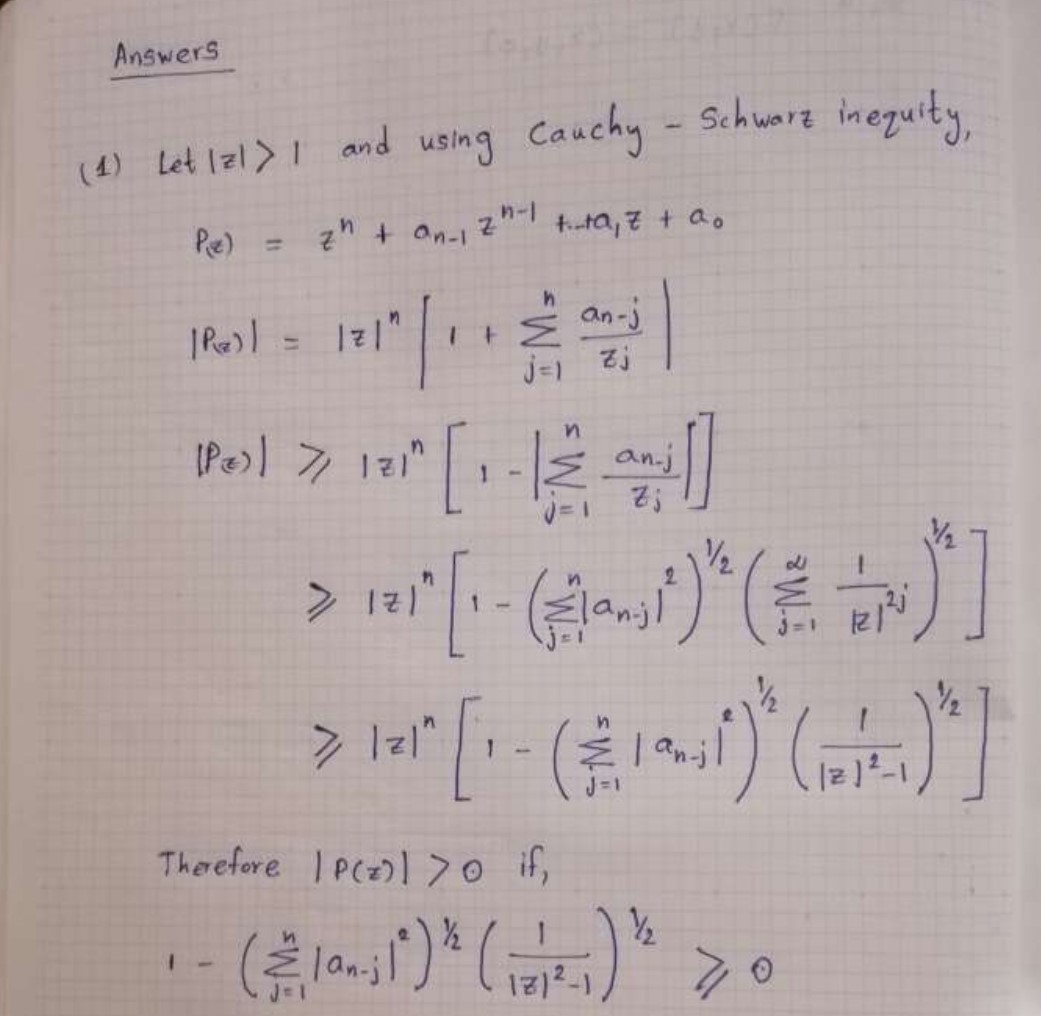 Answers
(1) Let |z| > 1 and using Cauchy - Schwarz inequity,
P(z) = z^n + a_{n-1} z^{n-1} +...+a_1 z + a_0
|P(z)| = |z|^n | 1 + ∑_{j=1}^{n} a_{n-j} / z^j |
|P(z)| ⩾ |z|^n [ 1 - | ∑_{j=1}^{n} a_{n-j} / z^j | ]
⩾ |z|^n [ 1 - ( ∑_{j=1}^{n} |a_{n-j}|^2 )^{1/2} ( ∑_{j=1}^{∞} 1 / |z|^{2j} )^{1/2} ]
⩾ |z|^n [ 1 - ( ∑_{j=1}^{n} |a_{n-j}|^2 )^{1/2} ( 1 / |z|^2-1 )^{1/2} ]
Therefore |P(z)| > 0 if,
1 - ( ∑_{j=1}^{n} |a_{n-j}|^2 )^{1/2} ( 1 / |z|^2-1 )^{1/2} ⩾ 0